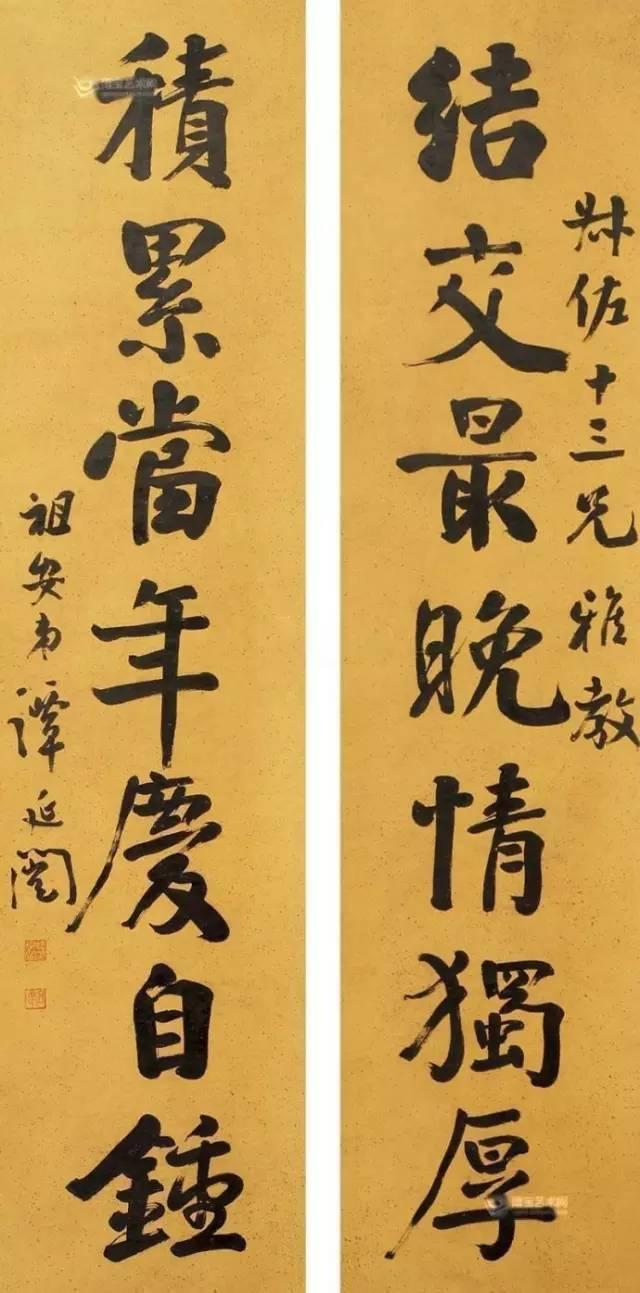 叔佐十三兄雅教
結交最晚情獨厚
積累當年慶自鍾
祖安弟譚延闓